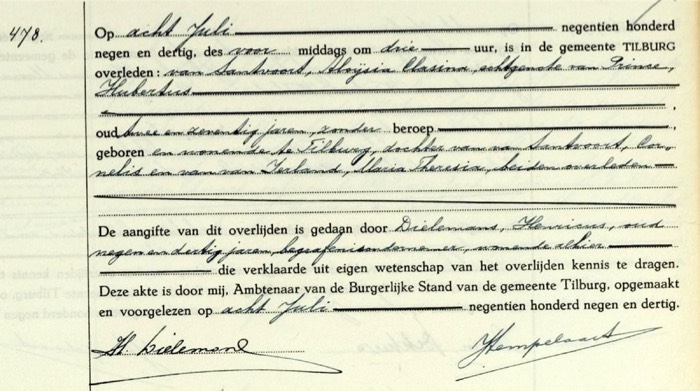 478.
Op acht Juli negentien honderd
negen en dertig, des voor middags om drie uur, is in de gemeente TILBURG
overleden: van Santvoort, Aloÿsia Clasina, echtgenote van Prince,
Hubertus
,
oud twee en zeventig jaren, zonder beroep ,
geboren en wonende te Tilburg, dochter van van Santvoort, Cor-
nelis en van van Ierland, Maria Theresia, beiden overleden
De aangifte van dit overlijden is gedaan door Dielemans, Henricus, oud
negen en dertig jaren, begrafenisondernemer, wonende alhier
die verklaarde uit eigen wetenschap van het overlijden kennis te dragen.
Deze akte is door mij, Ambtenaar van de Burgerlijke Stand van de gemeente Tilburg, opgemaakt
en voorgelezen op acht Juli negentien honderd negen en dertig.
H. Dielemans